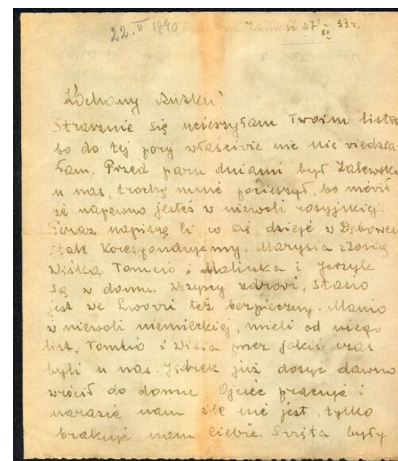 22.II 1940
Zamość 27/I
Kochany
Strasznie się ucieszyłam Twoim listem
bo do tej pory właściwie nic nie wiedzia
łam. Przed paru dniami był Zalewski
u nas, trochę mnie pocieszył, bo mówił
że napewno jesteś w niewoli rosyjskiej.
Zaraz napiszę Ci co się dzieje w
stale korespondujemy. Marysia z Zosią
Wiśka, Tomcio i Malinka i Jerzyk
są w domu. Wszyscy zdrowi, Stasio
jest we Lwowie też bezpieczny. Manio
w niewoli niemieckiej, mieli od niego
list, Tomcio i Wisia przez jakiś czas
byli u nas. już dosyć dawno
wrócił do domu. Ojciec pracuje i
narazie nam źle nie jest, tylko
brakuje nam Ciebie. Święta były